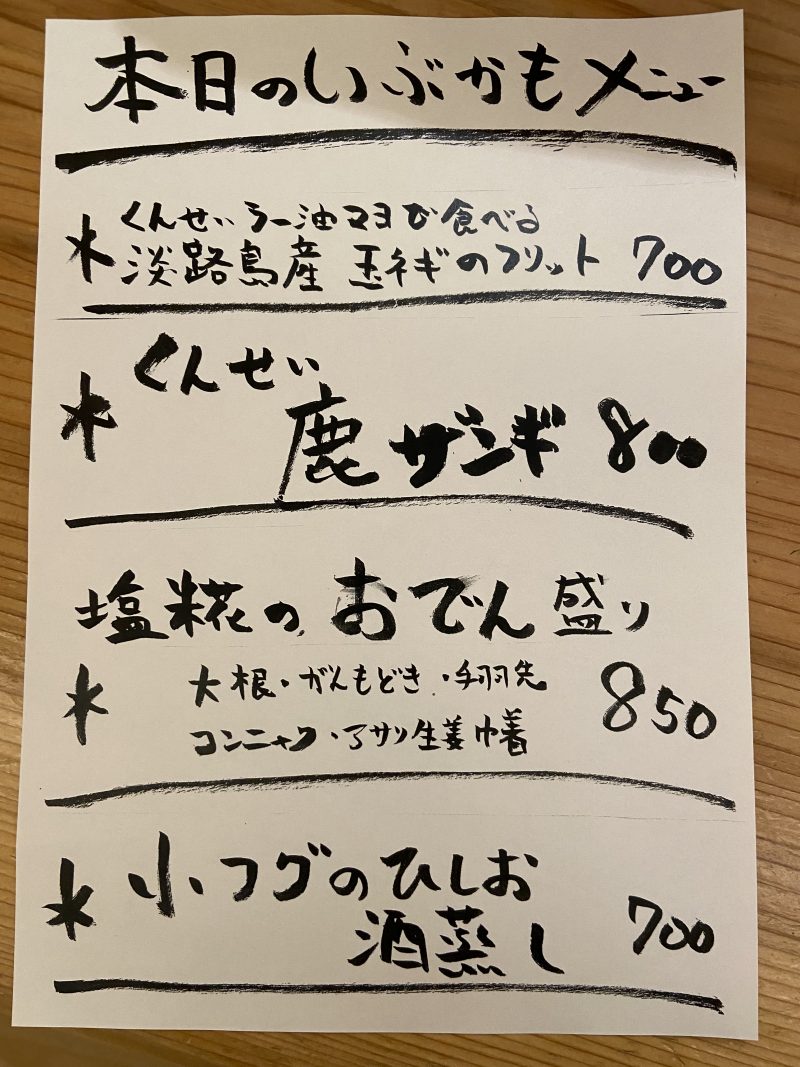 本日のいぶかもメニュー
くんせいラー油マヨで食べる
* 淡路島産 玉ネギのフリット 700
* くんせい
鹿ザンギ 800
塩糀の おでん盛り
* 大根・がんもどき・手羽先 850
コンニャク・アサリ生姜巾着
* 小フグのひしお
酒蒸し 700